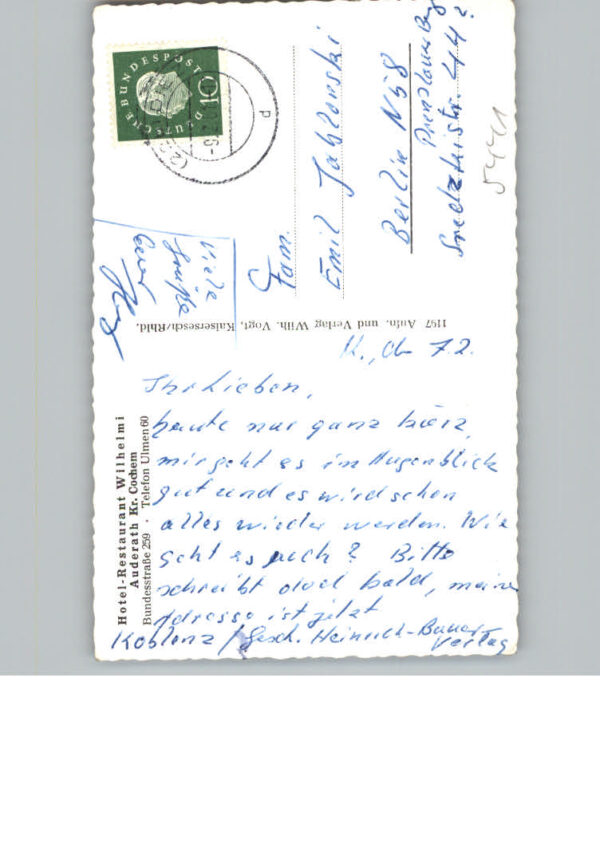 Hotel-Restaurant Wilhelmi
Auderath Kr. Cochem
Bundesstraße 259 · Telefon Ulmen 60
K., d. 7.2.
Ihr Lieben,
heute nur ganz kurz,
mir geht es im Augenblick
gut und es wird schon
alles wieder werden. Wie
geht es euch? Bitte
schreibt doch bald, meine
Adresse ist jetzt
Koblenz / Gesch. Heinrich-Bauer-
Verlag
Viele
Grüße
euer
1197 Aufn. und Verlag Wilh. Vogt, Kaisersesch/Rhld.
DEUTSCHE BUNDESPOST
10
Fam.
Emil Jablonski
Berlin N58
Prenzlauer Berg
Sredzkistr. 44
5441